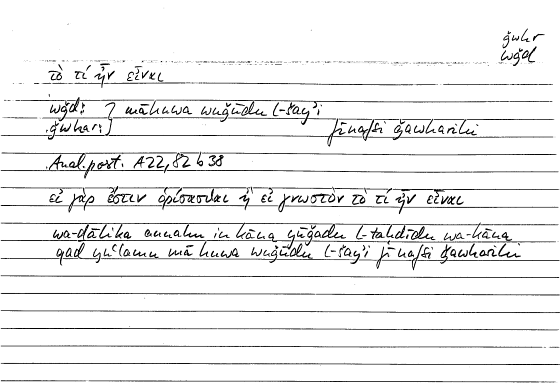 ǧwhr
wǧd
τὸ τί ἦν εἶναι
wǧd: } mā huwa wuǧūdu l-šayʾi
ǧwhar: } fī nafsi ǧawharihi
Anal. post. A22, 82 b 38
εἰ γὰρ ἔστιν ὁρίσασθαι ἢ εἰ γνωστὸν τὸ τί ἦν εἶναι
wa-ḏālika annahu in kāna yūǧadu l-taḥdīdu wa-kāna
qad yuʿlamu mā huwa wuǧūdu l-šayʾi fī nafsi ǧawharihi